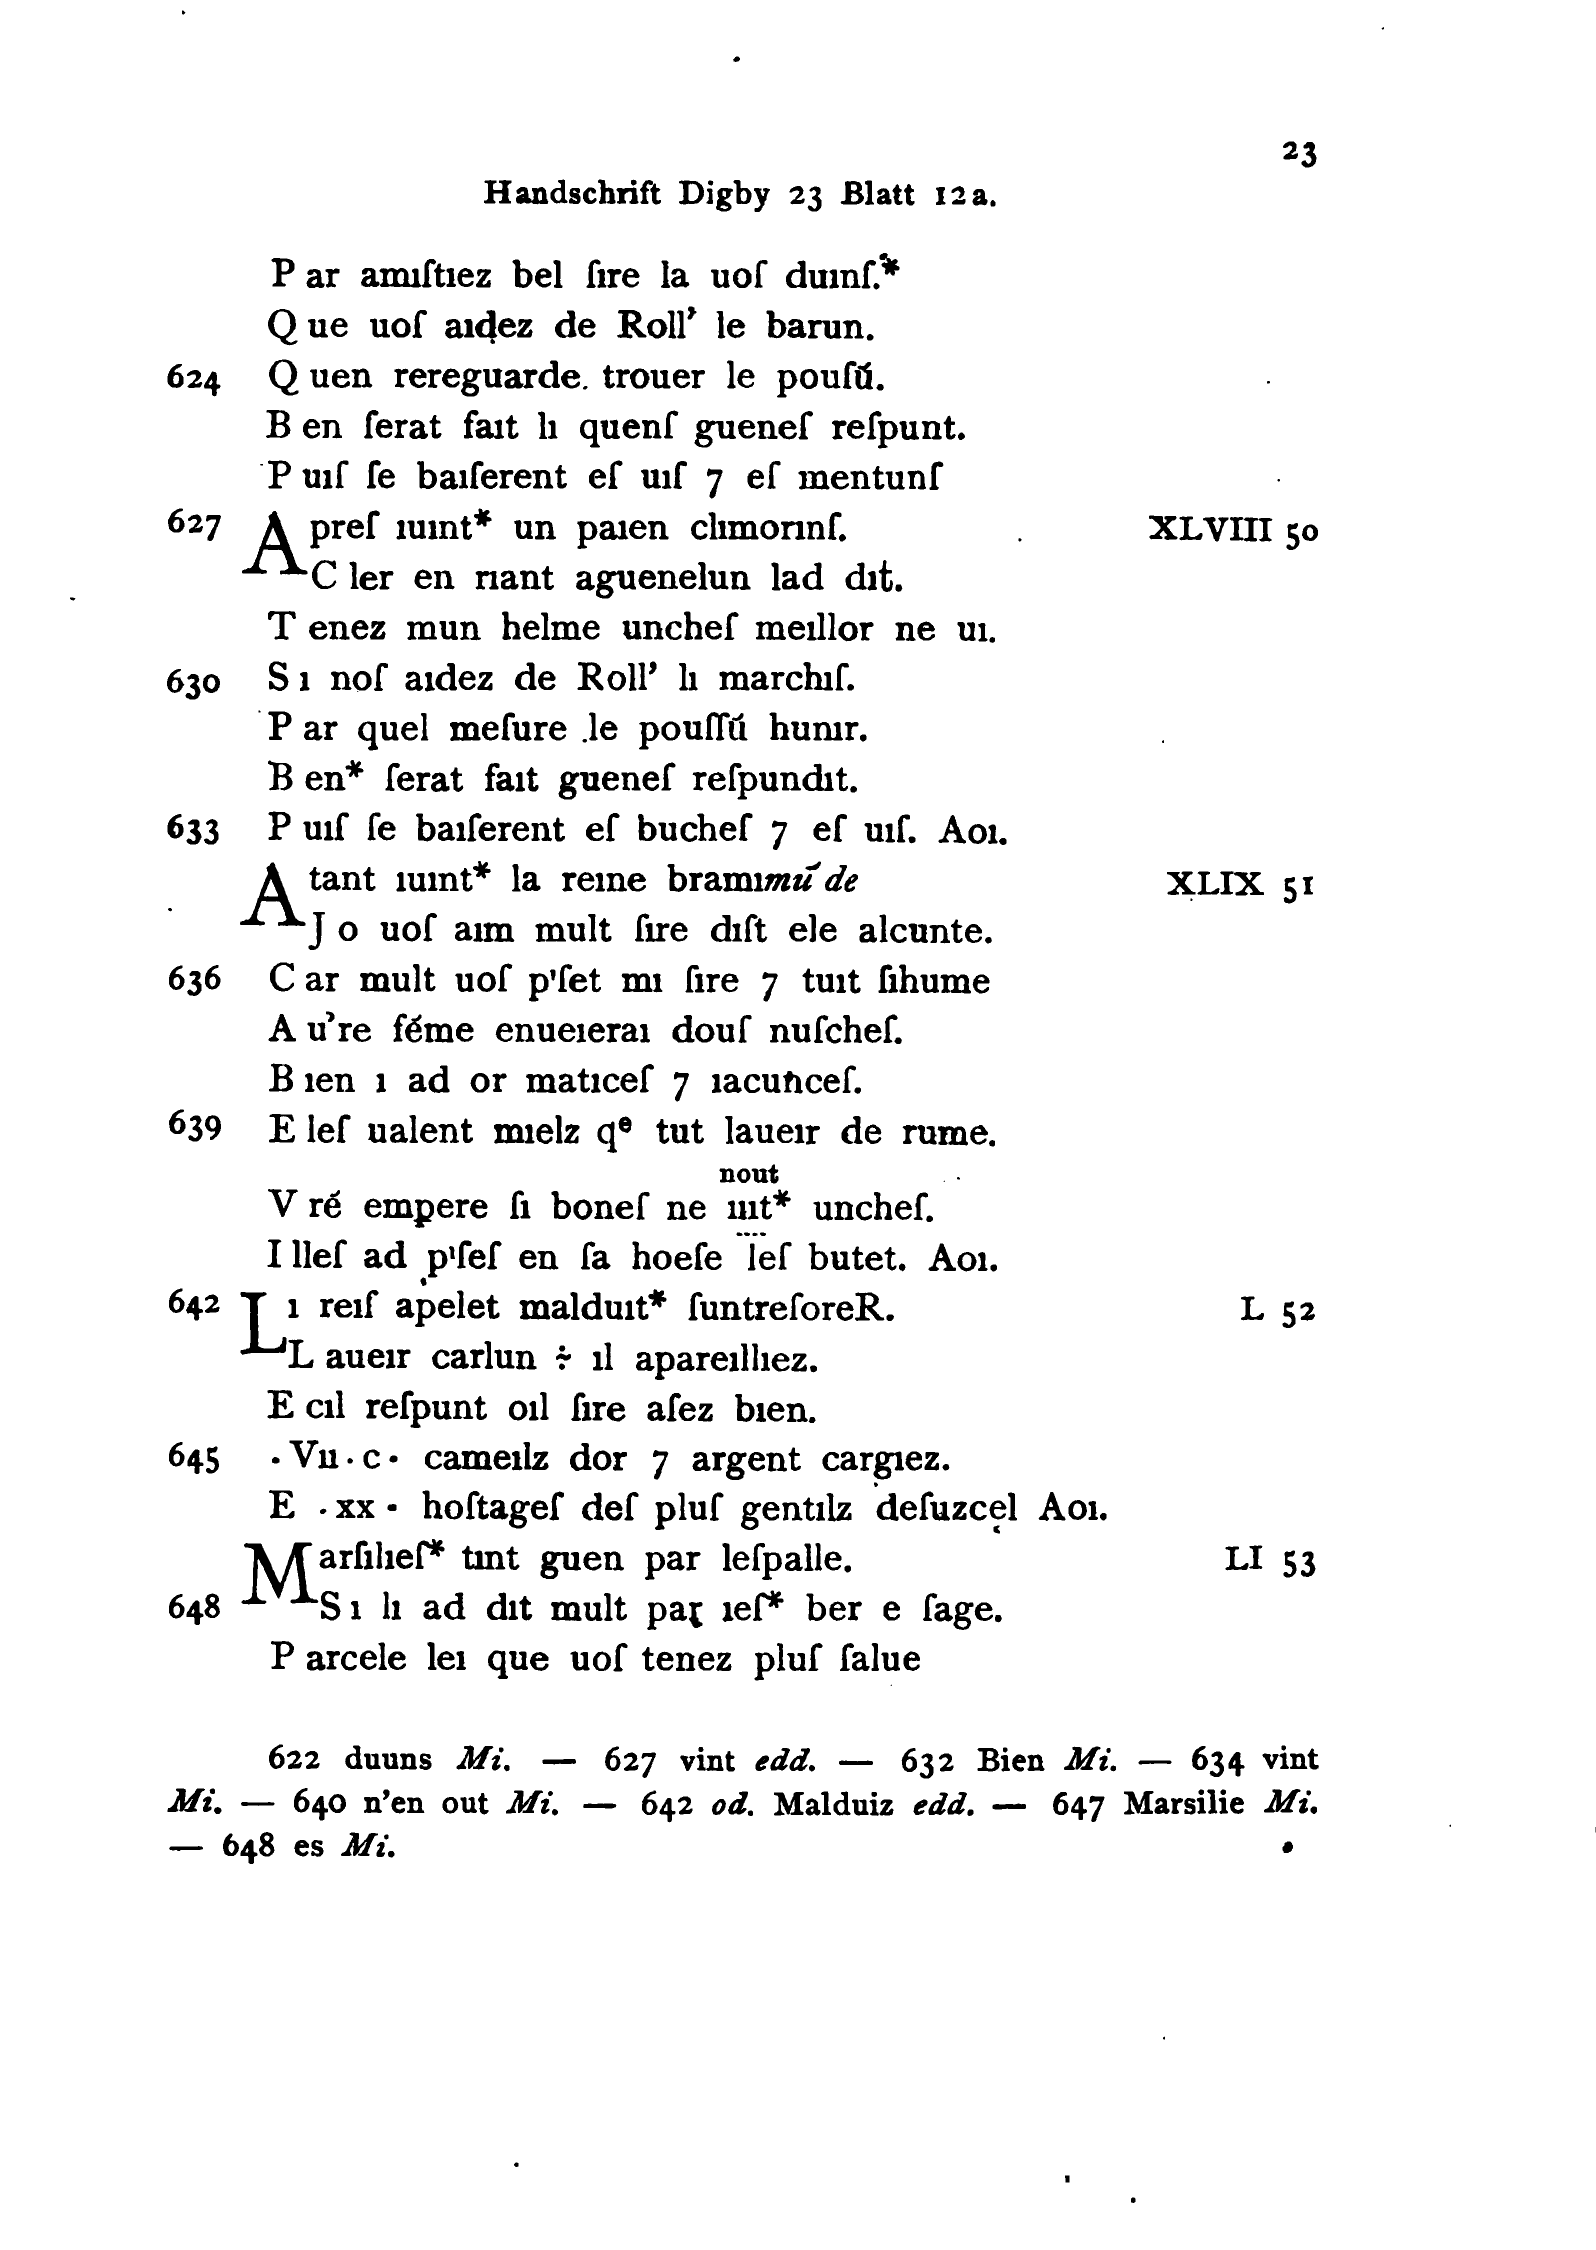 23
Handschrift Digby 23 Blatt 12a.
P ar amıſtıez bel ſıre la uoſ duınſ.*
Q ue uoſ aıdez de Roll’ le barun.
624 Q uen rereguarde. trouer le pouſű.
B en ſerat faıt lı quenſ gueneſ reſpunt.
P uıſ ſe baıſerent eſ uıſ 7 eſ mentunſ
627 A preſ ıuınt* un paıen clımorınſ. XLVIII 50
C ler en rıant aguenelun lad dıt.
T enez mun helme uncheſ meıllor ne uı.
630 S ı noſ aıdez de Roll’ lı marchıſ.
P ar quel meſure .le pouſſű hunır.
B en* ſerat faıt gueneſ reſpundıt.
633 P uıſ ſe baıſerent eſ bucheſ 7 eſ uıſ. Aoı.
A tant ıuınt* la reıne bramımű de XLIX 51
J o uoſ aım mult ſıre dıſt ele alcunte.
636 C ar mult uoſ p'ſet mı ſıre 7 tuıt ſıhume
A u’re féme enueıeraı douſ nuſcheſ.
B ıen ı ad or matıceſ 7 ıacunceſ.
639 E leſ ualent mıelz qᵉ tut laueır de rume.
nout
V ré empere ſı boneſ ne ııııt* uncheſ.
I lleſ ad p'ſeſ en ſa hoeſe leſ butet. Aoı.
642 L ı reıſ apelet malduıt* ſuntreſoreR. L 52
L aueır carlun ÷ ıl apareıllıez.
E cıl reſpunt oıl ſıre aſez bıen.
645 · Vıı · c · cameılz dor 7 argent cargıez.
E · xx · hoſtageſ deſ pluſ gentılz deſuzcel Aoı.
M arſılıeſ* tınt guen par leſpalle. LI 53
648 S ı lı ad dıt mult par ıeſ* ber e ſage.
P arcele leı que uoſ tenez pluſ ſalue
622 duuns Mi. — 627 vint edd. — 632 Bien Mi. — 634 vint
Mi. — 640 n’en out Mi. — 642 od. Malduiz edd. — 647 Marsilie Mi.
— 648 es Mi.